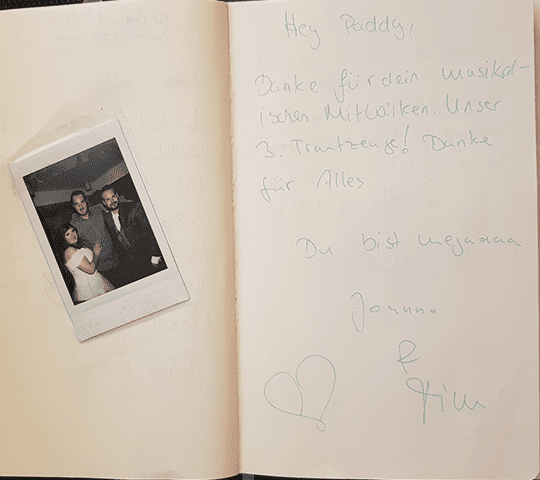 Hey Paddy,
Danke für dein musikal-
ischen Mitwirken. Unser
3. Trautzeuge! Danke
für Alles
Du bist megaaaa
Joanna
&
Tim